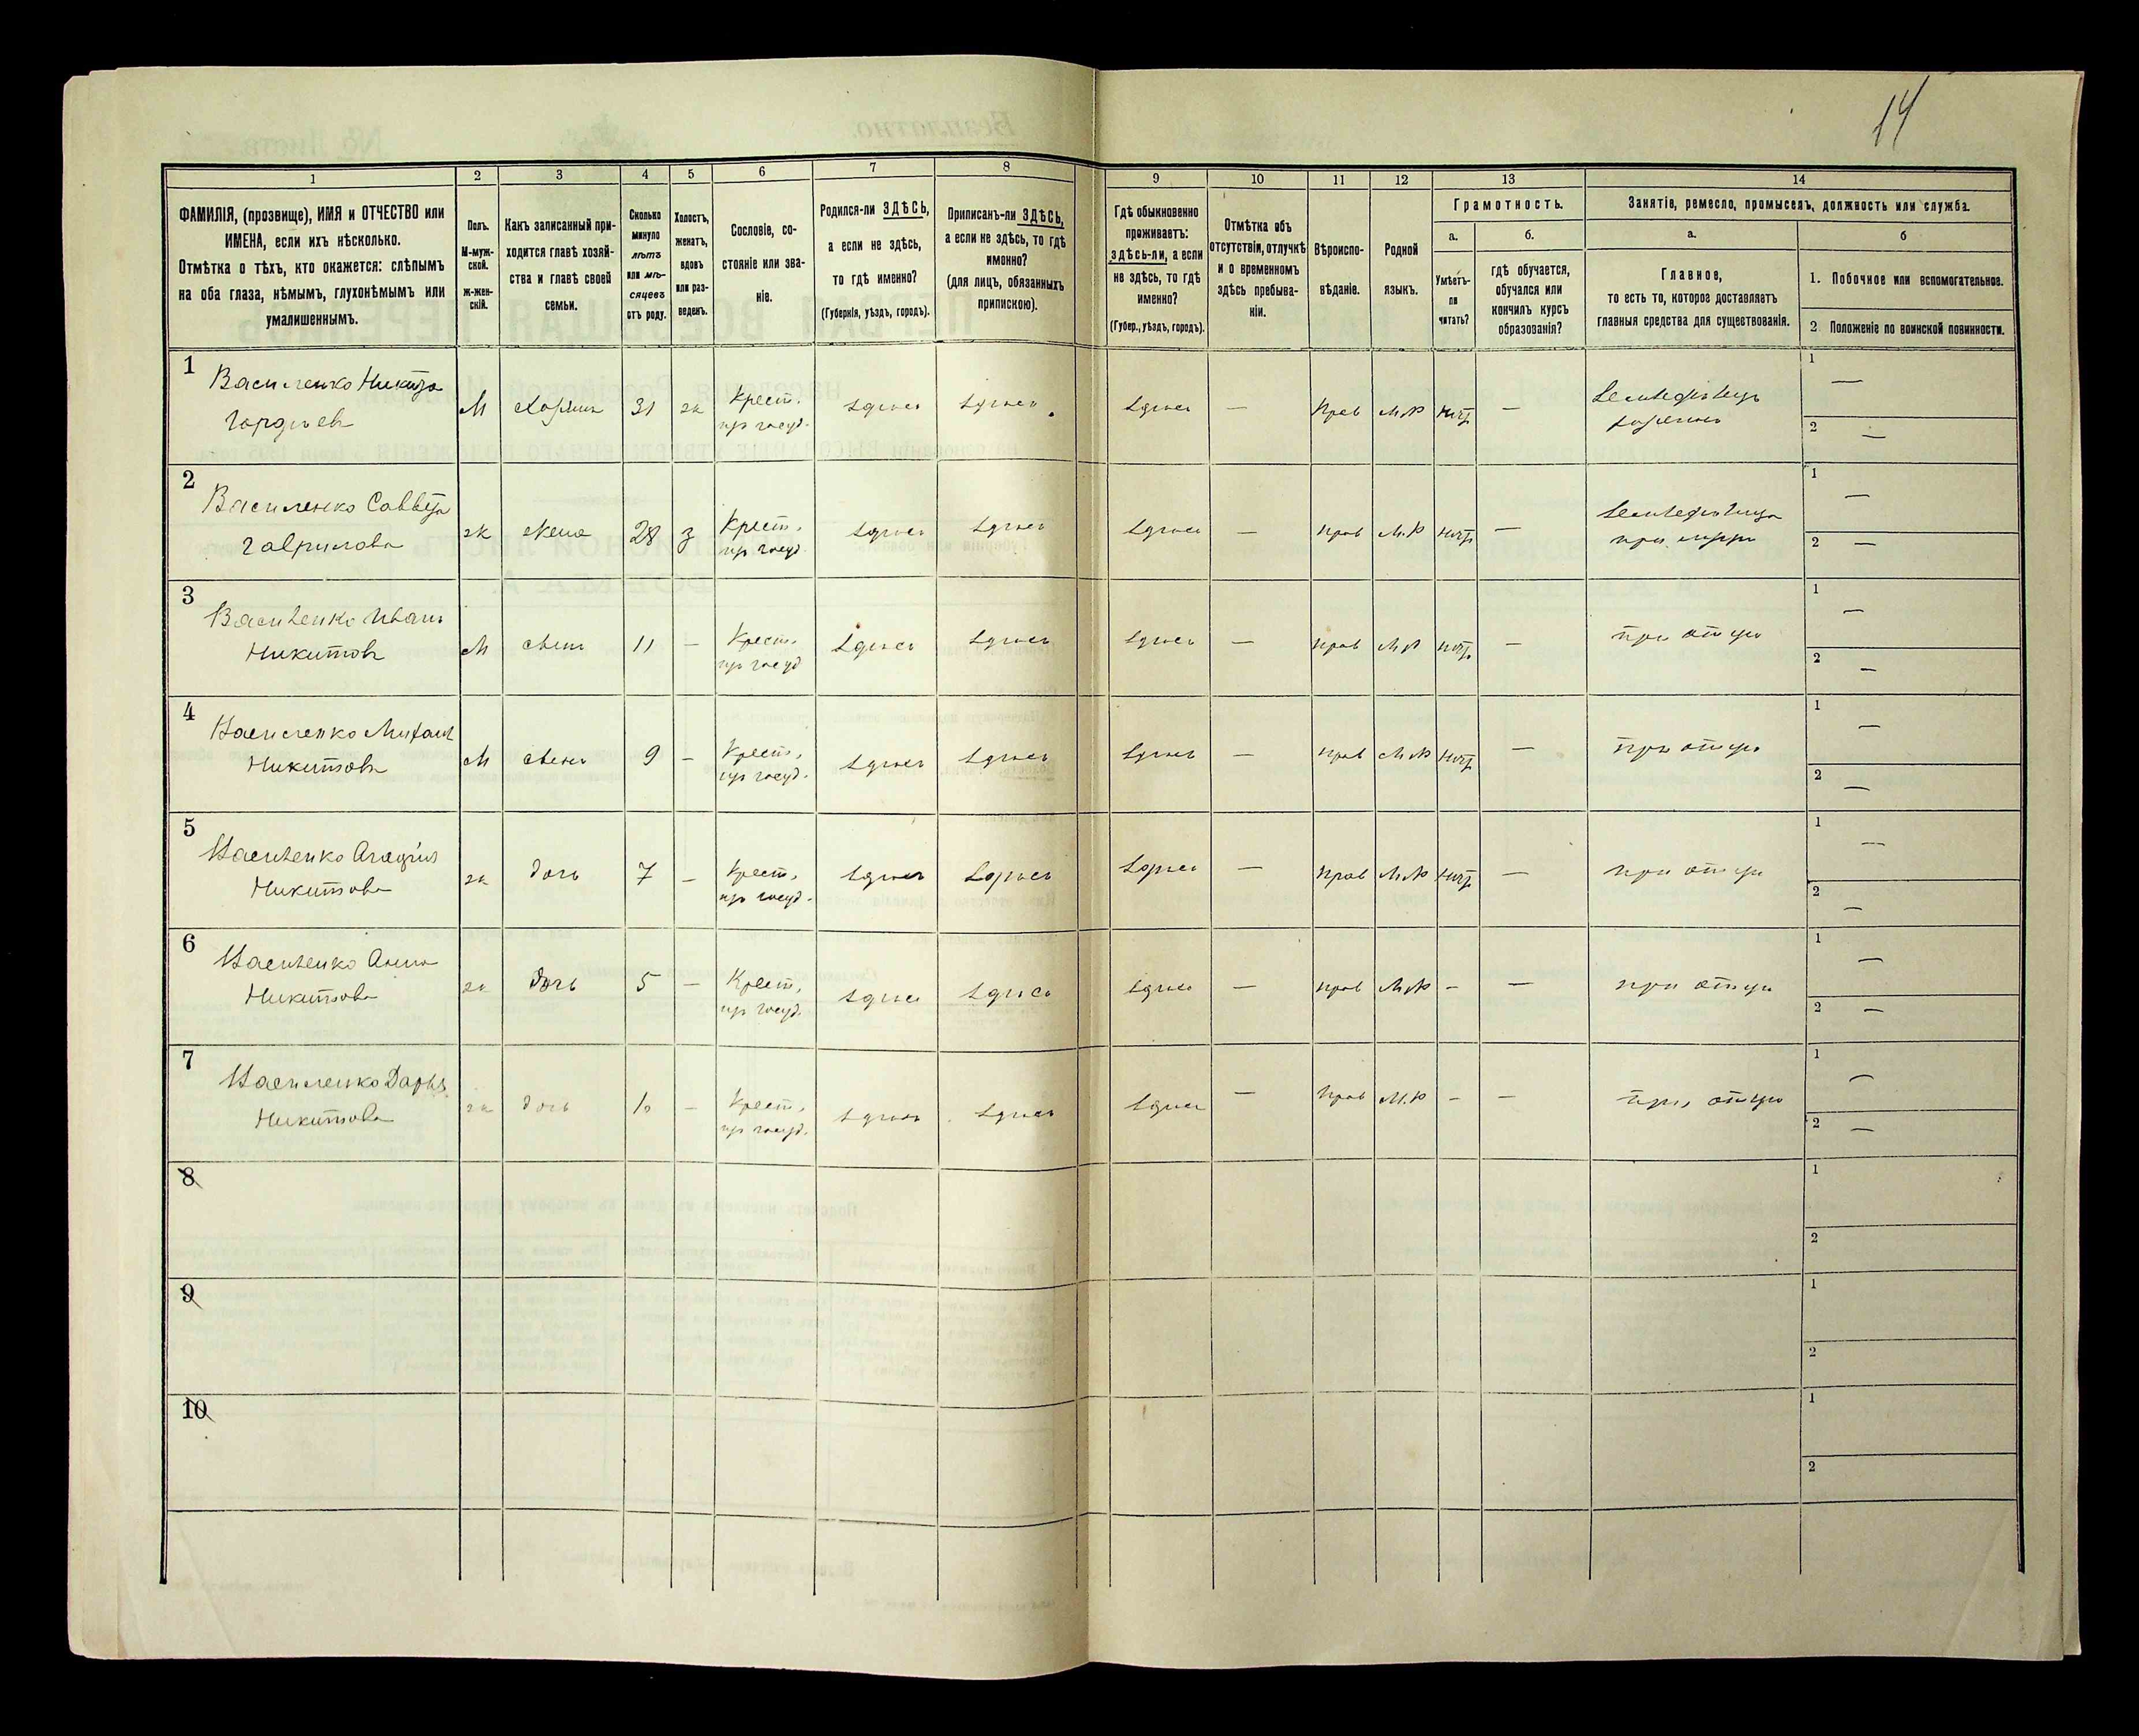 14
1
2
3
4
5
6
7
8
9
10
11
12
13
14
ФАМИЛІЯ, (прозвище), ИМЯ и ОТЧЕСТВО или
ИМЕНА, если ихъ нѣсколько.
Отмѣтка о тѣхъ, кто окажется: слѣпымъ
на оба глаза, нѣмымъ, глухонѣмымъ или
умалишеннымъ.
Полъ.
М-муж-
ской.
Ж-жен-
скій.
Какъ записанный при-
ходится главѣ хозяй-
ства и главѣ своей
семьи.
Сколько
минуло
лѣтъ
или мѣ-
сяцевъ
отъ роду.
Холостъ,
женатъ,
вдовъ
или раз-
веденъ.
Сословіе, со-
стояніе или зва-
ніе.
Родился-ли ЗДѢСЬ,
а если не здѣсь,
то гдѣ именно?
(Губернія, уѣздъ, городъ).
Приписанъ-ли ЗДѢСЬ,
а если не здѣсь, то гдѣ
именно?
(для лицъ, обязанныхъ
припискою).
Гдѣ обыкновенно
проживаетъ:
здѣсь-ли, а если
не здѣсь, то гдѣ
именно?
(Губер., уѣздъ, городъ).
Отмѣтка объ
отсутствіи, отлучкѣ
и о временномъ
здѣсь пребыва-
ніи.
Вѣроиспо-
вѣданіе.
Родной
языкъ.
Грамотность.
а.
Умѣетъ-
ли
читать?
б.
гдѣ обучается,
обучался или
кончилъ курсъ
образованія?
Занятіе, ремесло, промыселъ, должность или служба.
а.
Главное,
то есть то, которое доставляетъ
главныя средства для существованія.
б
1. Побочное или вспомогательное.
2. Положеніе по воинской повинности.
1
Василенко Никита
Гордѣевъ
М
хозяинъ
31
ж
Крест.
изъ госуд.
здѣсь
здѣсь
здѣсь
—
прав
М.Р
нѣтъ
—
Земледѣлецъ
хозяинъ
1
—
2
—
2
Василенко
Гаврилова
ж
жена
28
з
Крест.
изъ госуд
здѣсь
здѣсь
здѣсь
—
прав
М.Р
нѣтъ
—
Земледѣлица
при мужѣ
1
—
2
—
3
Василенко Иванъ
Никитовъ
М
сынъ
11
—
Крест.
изъ госуд
здѣсь
здѣсь
здѣсь
—
прав
М.Р
нѣтъ
—
при отцѣ
1
—
2
—
4
Василенко Михаил
Никитовъ
М
сынъ
9
—
Крест.
изъ госуд.
здѣсь
здѣсь
здѣсь
—
прав
М.Р
нѣтъ
—
при отцѣ
1
—
2
—
5
Василенко
Никитова
ж
дочь
7
—
Крест.
изъ госуд.
здѣсь
здѣсь
здѣсь
—
прав
М.Р
нѣтъ
—
при отцѣ
1
—
2
—
6
Василенко Анна
Никитова
ж
дочь
5
—
Крест.
изъ госуд.
здѣсь
здѣсь
здѣсь
—
прав
М.Р
—
—
при отцѣ
1
—
2
—
7
Василенко Дарья
Никитова
ж
дочь
—
Крест.
изъ госуд.
здѣсь
здѣсь
здѣсь
—
прав
М.Р
—
—
при отцѣ
1
—
2
—
8
1
2
9
1
2
10
1
2